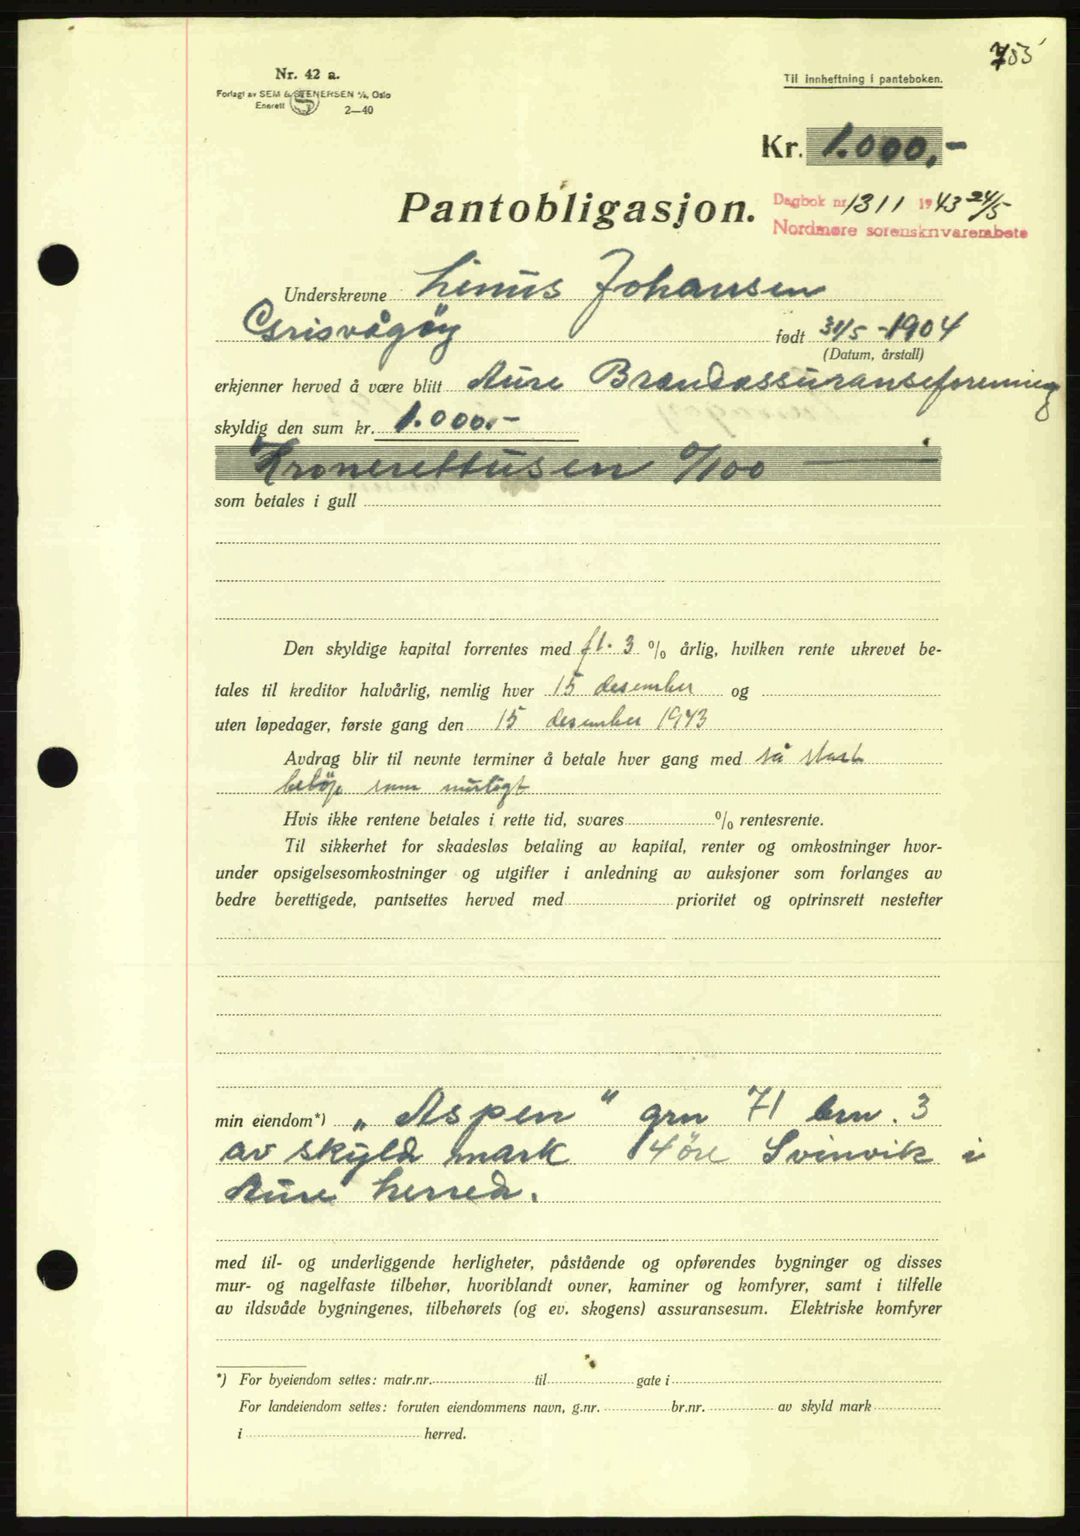 755
Nr. 42 a.
Forlagt av SEM & STENERSEN A/S, Oslo
Enerett
2—40
Til innheftning i panteboken.
Kr. 1.000,-
Pantobligasjon.
Dagbok nr. 1311 1943 24/5
Nordmøre sorenskriverembete
Underskrevne Linus Johansen
Grisvågøy født 31/5-1904
(Datum, årstall)
erkjenner herved å være blitt Aure Brandassuranseforening
skyldig den sum kr. 1.000.-
Kronerettusen 0/100
som betales i gull
Den skyldige kapital forrentes med f.t. 3 % årlig, hvilken rente ukrevet be-
tales til kreditor halvårlig, nemlig hver 15 desember og
uten løpedager, første gang den 15 desember 1943
Avdrag blir til nevnte terminer å betale hver gang med så stort
beløp som muligt
Hvis ikke rentene betales i rette tid, svares % rentesrente.
Til sikkerhet for skadesløs betaling av kapital, renter og omkostninger hvor-
under opsigelsesomkostninger og utgifter i anledning av auksjoner som forlanges av
bedre berettigede, pantsettes herved med prioritet og optrinsrett nestefter
min eiendom*) „Aspen" grn 71 brn. 3
av skyld mark 14 öre Svinvik i
Aure herred.
med til- og underliggende herligheter, påstående og opførendes bygninger og disses
mur- og nagelfaste tilbehør, hvoriblandt ovner, kaminer og komfyrer, samt i tilfelle
av ildsvåde bygningenes, tilbehørets (og ev. skogens) assuransesum. Elektriske komfyrer
*) For byeiendom settes: matr.nr. til gate i
For landeiendom settes: foruten eiendommens navn, g.nr. br.nr. av skyld mark
i herred.